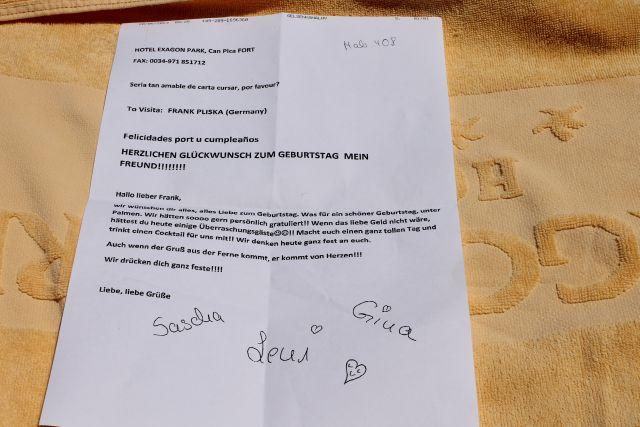 HOTEL EXAGON PARK, Can Pica FORT
Hab 408
FAX: 0034-971 851712
Seria tan amable de carta cursar, por favour?
To Visita: FRANK PLISKA (Germany)
Felicidades port u cumpleaños
HERZLICHEN GLÜCKWUNSCH ZUM GEBURTSTAG MEIN
FREUND!!!!!!!!
Hallo lieber Frank,
wir wünschen dir alles, alles Liebe zum Geburtstag. Was für ein schöner Geburtstag, unter
Palmen. Wir hätten soooo gern persönlich gratuliert!! Wenn das liebe Geld nicht wäre,
hättest du heute einige Überraschungsgäste☺☺!! Macht euch einen ganz tollen Tag und
trinkt einen Cocktail für uns mit!! Wir denken heute ganz fest an euch.
Auch wenn der Gruß aus der Ferne kommt, er kommt von Herzen!!!
Wir drücken dich ganz feste!!!!
Liebe, liebe Grüße
Sascha
Gina
Leni